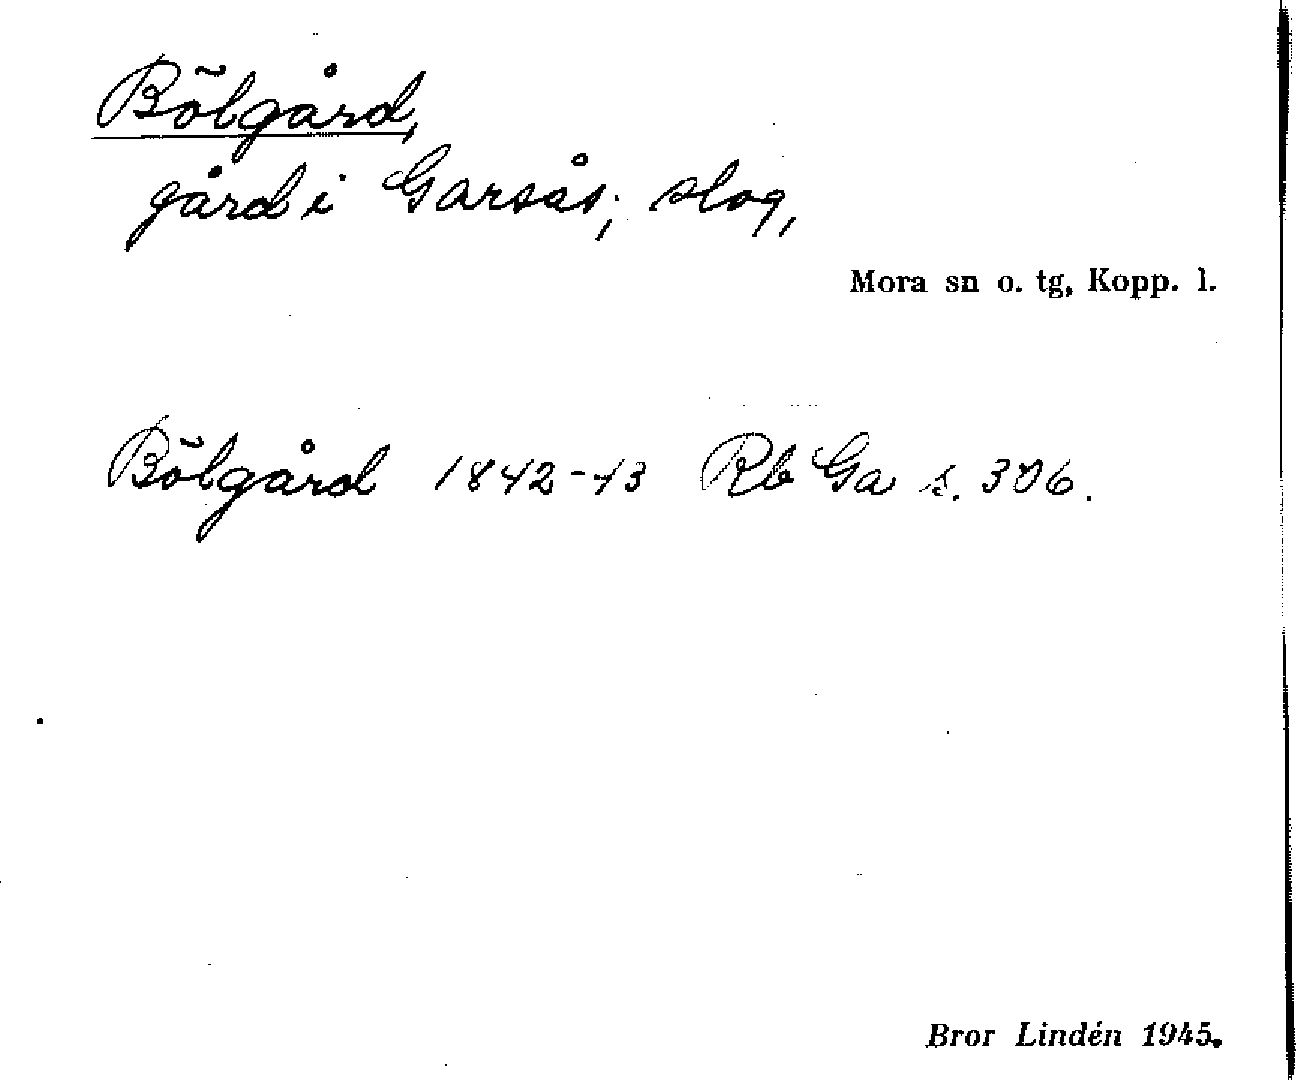 Bölgård,
gård i Garsås; slog,
Mora sn o. tg, Kopp. l.
Bölgård 1842-43 Rb Ga s. 306.
Bror Lindén 1945.